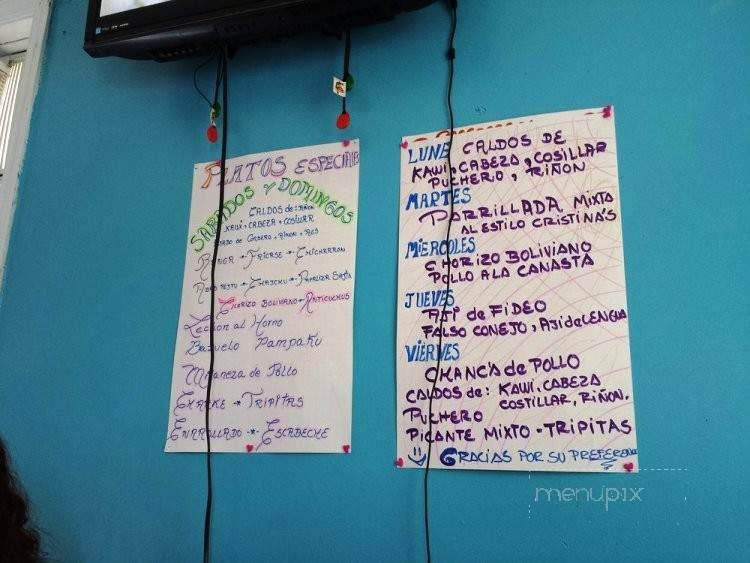 PLATOS ESPECIALES
SABADOS Y DOMINGOS
CALDOS de: RIÑON
KAWI, CABEZA, COSTILLAR
RANGA - FRICASE - CHICHARRON
CHORIZO BOLIVIANO - ANTICUCHOS
LECHON al HORNO
PAMPAKU
de POLLO
CHARKE - TRIPITAS
ENROLLADO - ESCABECHE
LUNE CALDOS DE
KAWI, CABEZA, COSILLAR
PUCHERO, RIÑON
MARTES
PARRILLADA MIXTA
AL ESTILO CRISTINA'S
MIERCOLES
CHORIZO BOLIVIANO
POLLO A LA CANASTA
JUEVES
AJI de FIDEO
FALSO CONEJO, AJI de LENGUA
VIERNES
CHANCA de POLLO
CALDOS de: KAWI, CABEZA
COSTILLAR, RIÑON.
PUCHERO
PICANTE MIXTO - TRIPITAS
GRACIAS POR SU PREFERENCIA
menupix